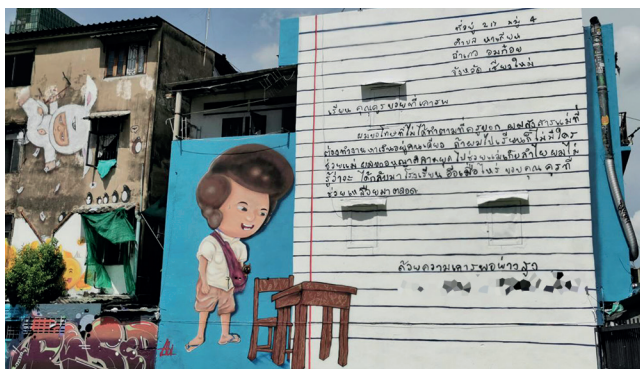 ที่อยู่ 217 หมู่ 4
ตำบล นาเกียน
อำเภอ อมก๋อย
จังหวัด เชียงใหม่
เรียน คุณครูยอยที่เคารพ
ผมขอโทษที่ไม่ได้ทำตามที่ครูบอก ผมสงสารแม่ที่
ต้องทำงานหาเงินอยู่คนเดียว ถ้าผมไปเรียนก็ไม่มีใคร
ช่วยแม่ ผมขออนุญาติลาหยุดไปช่วยแม่เก็บลำไย ผมไม่
รู้ว่าจะได้กลับมาโรงเรียนอีกเมื่อไหร่ ขอบคุณครูที่
ช่วยเหลือผมมาตลอด
ด้วยความเคารพอย่างสูง